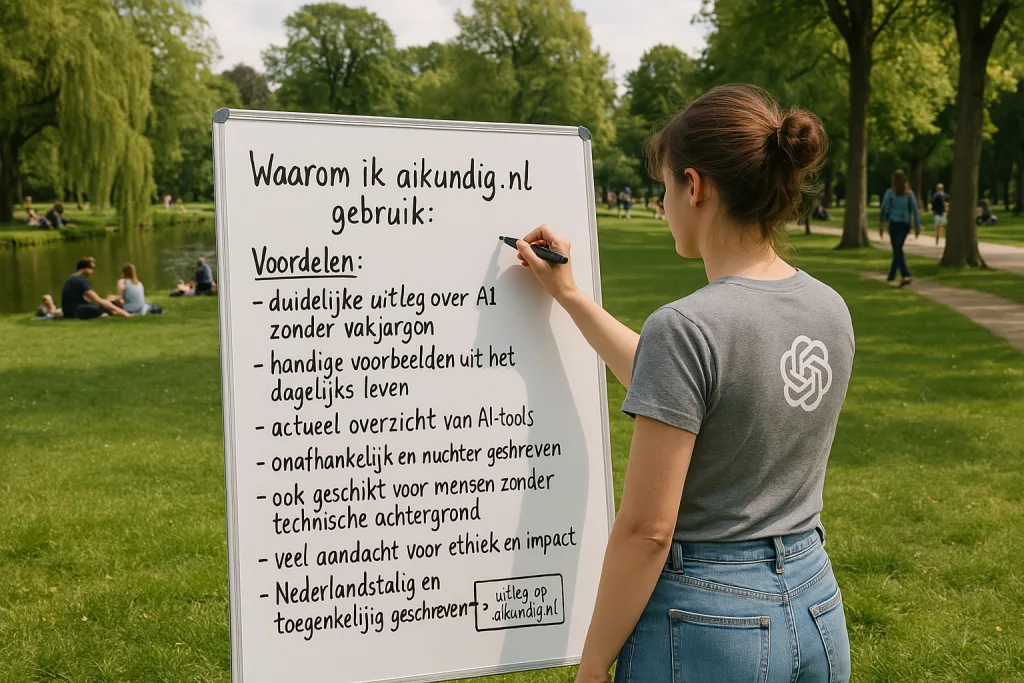 Waarom ik aikundig.nl
gebruik:
Voordelen:
- duidelijke uitleg over A1
zonder vakjargon
- handige voorbeelden uit het
dagelijks leven
- actueel overzicht van AI-tools
- onafhankelijk en nuchter geshreven
- ook geschikt voor mensen zonder
technische achtergrond
- veel aandacht voor ethiek en impact
- Nederlandstalig en
toegenkelijig geschreven
uitleg op
.alkundig.nl